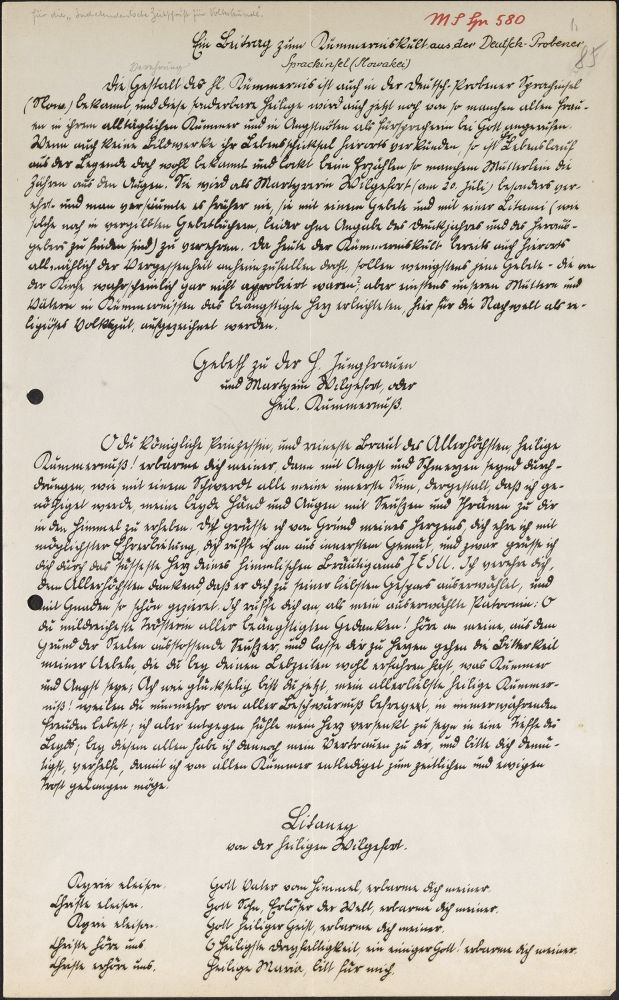 für die „Sudetendeutsche Zeitschrift für Volkskunde".
MS Gr 580
85
Ein Beitrag zum Kümmerniskult aus der Deutsch-Probener
Verehrung
Sprachinsel (Slowakei)
Die Gestalt der hl. Kümmernis ist auch in der Deutsch-Probener Sprachinsel
(Slow.) bekannt, und diese sonderbare Heilige wird auch jetzt noch von so manchen alten Frau-
en in ihrem alltäglichen Kummer und in Angstnöten als Fürsprecherin bei Gott angerufen.
Wenn auch keine Bildwerke ihr Lebensschicksal hierorts verkünden, so ist ihr Lebenslauf
aus der Legende doch wohl bekannt und lockt beim Erzählen so manchem Mütterlein die
Zähren aus den Augen. Sie wird als Martyrerin Wilgefort (am 20. Juli) besonders ver-
ehrt und man versäumte es früher nie, sie mit einem Gebete und mit einer Litanei (wie
solche noch in vergilbten Gebetbüchern, leider ohne Angabe des Druckjahres und des Heraus-
gebers zu finden sind) zu verehren. Da heute der Kümmerniskult bereits auch hierorts
allmählich der Vergessenheit anheimzufallen droht, sollen wenigstens jene Gebete - die von
der Kirche wahrscheinlich gar nicht approbiert waren, aber einstens unseren Müttern und
Vätern in Kümmernissen das beängstigte Herz erleichterten, hier für die Nachwelt als re-
ligiöses Volksgut, aufgezeichnet werden.
Gebeth zu der H. Jungfrauen
und Martyrin Wilgefort, oder
Heil. Kümmernuß.
O du Königliche Prinzessin, und reineste Braut des Allerhöchsten, heilige
Kummernuß! erbarme dich meiner, dann mit Angst und Schmerzen seynd durch-
drungen, wie mit einem Schwerdt alle meine innerste Sinn, dergestalt, daß ich ge-
nöthiget werde, meine beyde Händ und Augen mit Seufzen und Thränen zu dir
in den Himmel zu erheben. Dich grüsse ich von Grund meines Herzens, dich ehre ich mit
möglichster Ehrerbietung, dich ruffe ich an aus innerstem Gemüt, und zwar grüsse ich
dich durch das süsseste Herz deines himmlischen Bräutigams JESU. Ich verehre dich,
dem Allerhöchsten dankend daß er dich zu seiner liebsten Gespons auserwählet, und
mit Gnaden so schön gezieret. Ich ruffe dich an, als mein auserwählte Patronin: O
du mildreicheste Trösterin aller beängstigten Gedanken! höre an meine, aus dem
Grund der Seelen ausstossende Seufzer, und lasse dir zu Herzen gehen die Bitterkeit
meiner Uebeln, die du bey deinen Lebzeiten wohl erfahren hast, was Kummer
und Angst seye; Ach wie glückselig bist du jetzt, mein allerliebste heilige Kummer-
nuß! weilen du nunmehr von aller Beschwärnuß befreyet, in immerwährenden
Freuden lebest; ich aber entgegen fühle mein Herz versenkt zu seyn in eine Tieffe des
Leyds; bey diesem allen habe ich dannoch mein Vertrauen zu dir, und bitte dich demü-
tigst, verhelfe, damit ich von allen Kummer entlediget zum zeitlichen und ewigen
Trost gelangen möge.
Litaney
von der heiligen Wilgefort.
Kyrie eleison. Gott Vater vom Himmel, erbarme dich meiner.
Christe eleison. Gott Sohn, Erlöser der Welt, erbarme dich meiner.
Kyrie eleison. Gott heiliger Geist, erbarme dich meiner.
Christe höre uns O heiligste Dreyfaltigkeit, ein einiger Gott! erbarme dich meiner.
Christe erhöre uns. Heilige Maria, bitt für mich.